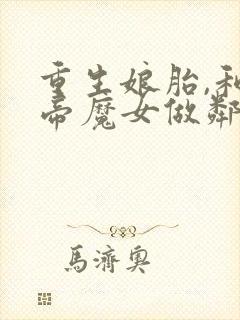 重生娘胎,和
帝魔女做鄰
馬濟奧